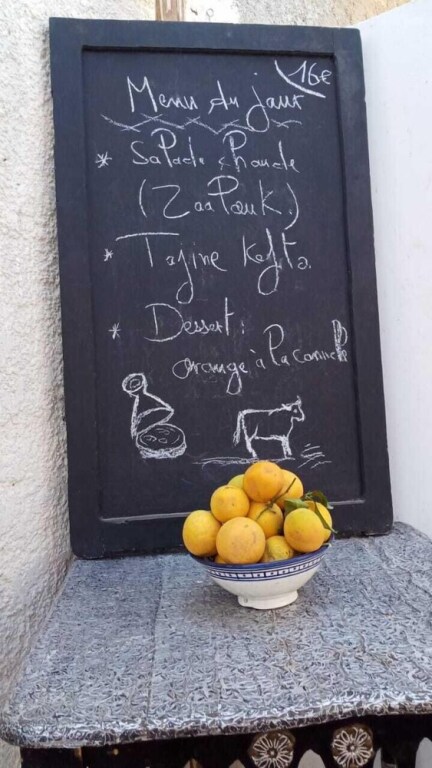 16€
Menu du jour
* Salade chaude
(Zaalouk)
* Tajine Kefta.
* Dessert :
orange à la cannelle